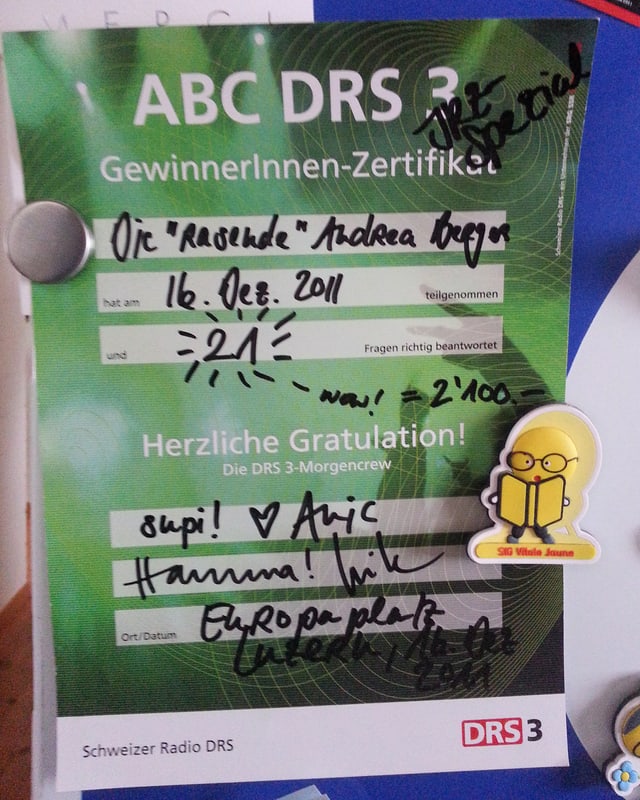 MERCI
ABC DRS 3
JRZ-
Spezial
GewinnerInnen-Zertifikat
Die "Rasende" Andrea Berger
hat am 16. Dez. 2011 teilgenommen
und 21 Fragen richtig beantwortet
wow! = 2'100.-
Herzliche Gratulation!
Die DRS 3-Morgencrew
supi! ♡ Anic
Hammma!
Ort/Datum Europaplatz
Luzern, 16. Dez
2011
SIG Vitale Jaune
Schweizer Radio DRS
DRS 3